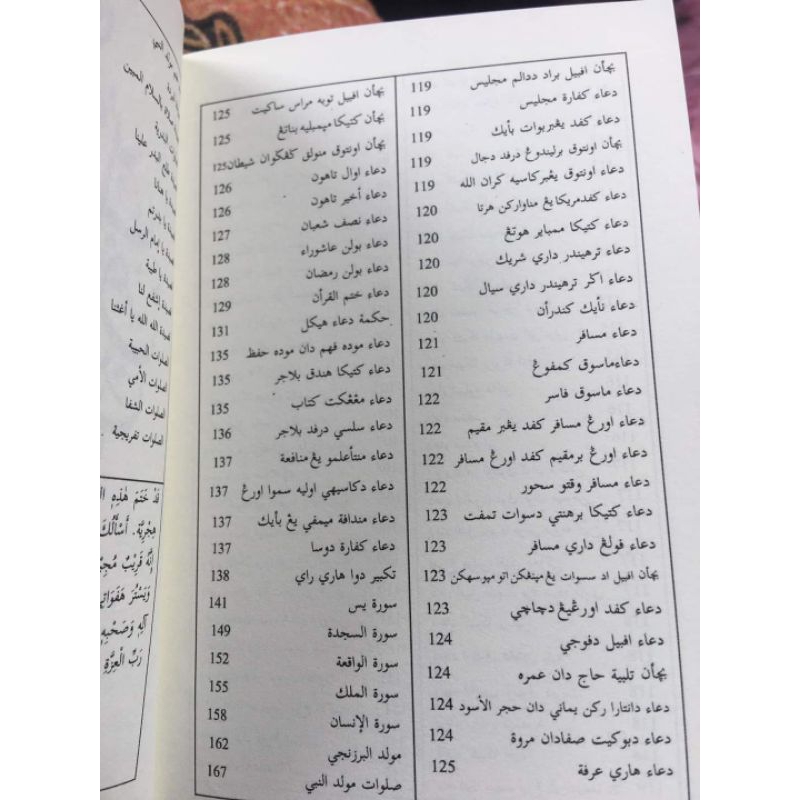 بچأن افبيل براد ددالم مجليس 119
دعاء كفارة مجليس 119
دعاء كفد يڠبربوات بأيك 119
بچأن اونتوق برليندوڠ درفد دجال 119
دعاء اونتوق يڠبركاسيه كران الله 119
دعاء كفدمريكا يڠ مناواركن هرتا 120
دعاء كتيكا ممباير هوتڠ 120
دعاء ترهيندر داري شريك 120
دعاء اكر ترهيندر داري سيال 120
دعاء نأيك كندرأن 120
دعاء مسافر 121
دعاءماسوق كمفوڠ 121
دعاء ماسوق فاسر 122
دعاء اورڠ مسافر كفد يڠبر مقيم 122
دعاء اورڠ برمقيم كفد اورڠ مسافر 122
دعاء مسافر وقتو سحور 122
دعاء كتيكا برهنتي دسوات تمفت 123
دعاء فولڠ داري مسافر 123
بچأن افبيل اد سسوات يڠ مينڠكن اتو مپوسهكن 123
دعاء كفد اورڠيڠ دچاچي 123
دعاء افبيل دفوجي 124
بچأن تلبية حاج دان عمره 124
دعاء دانتارا ركن يماني دان حجر الأسود 124
دعاء دبوكيت صفادان مروة 124
دعاء هاري عرفة 125
بچأن افبيل توبه مراس ساكيت 125
بچأن كتيكا ميمبليه بناتڠ 125
بچأن اونتوق منولق كڤكوان شيطان 125
دعاء اوال تاهون 126
دعاء أخير تاهون 126
دعاء نصف شعبان 127
دعاء بولن عاشوراء 128
دعاء بولن رمضان 128
دعاء ختم القرأن 129
حكمة دعاء هيكل 131
دعاء موده فهم دان موده حفظ 135
دعاء كتيكا هندق بلاجر 135
دعاء مڠڠكت كتاب 135
دعاء سلسي درفد بلاجر 136
دعاء منتأعلمو يڠ منافعة 137
دعاء دكاسيهي اوليه سموا اورڠ 137
دعاء مندافة ميمفي يڠ بأيك 137
دعاء كفارة دوسا 137
تكبير دوا هاري راي 138
سورة يس 141
سورة السجدة 149
سورة الواقعة 152
سورة الملك 155
سورة الإنسان 158
مولد البرزنجي 162
صلوات مولد النبي 167
يا إمام الرسل
يا طيبة
إشفع لنا
الله الله يا أغثنا
صلوات الحبيبة
صلوات الأمي
صلوات الشفا
صلوات تفريجية
قَدْ خَتَمَ هَٰذِهِ
هِجْرِيَّة. أَسْأَلُكَ
إِنَّهُ قَرِيْبٌ
وَيَسْتُرَ هَفَوَاتِ
آلِهِ وَصَحْبِهِ
رَبِّ الْعِزَّةِ